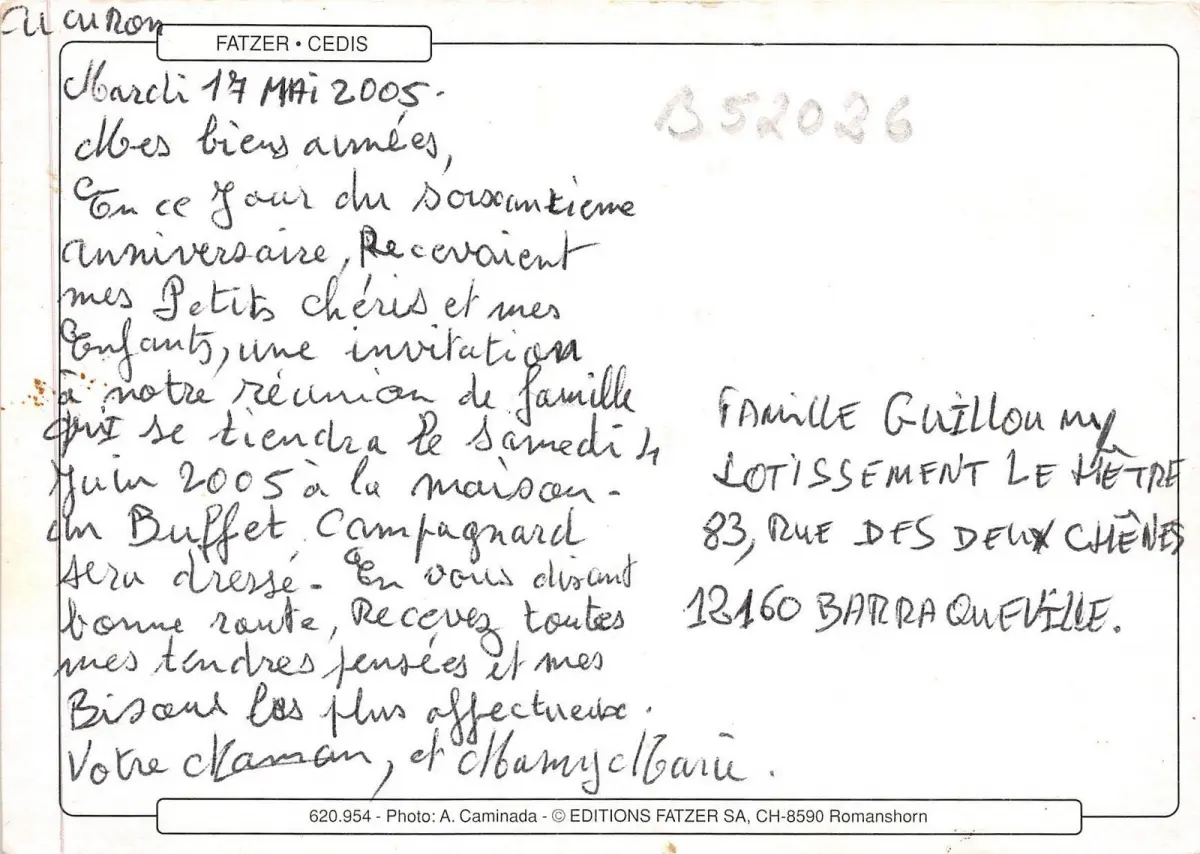 CUCURON
FATZER • CEDIS
Mardi 17 MAi 2005.
B52026
Mes biens aimées,
En ce Jour du soixantieme
anniversaire, Recevaient
mes Petits chéris et mes
Enfants, une invitation
à notre réunion de famille
qui se tiendra le samedi 4
Juin 2005 à la maison -
un Buffet Campagnard
sera dressé - En vous disant
bonne route, Recevez toutes
mes tendres pensées et mes
Bisous les plus affectueux.
Votre Maman, et Mamy Marie.
FAMILLE GUILLOUMY
LOTISSEMENT LE HÊTRE
83, RUE DES DEUX CHÊNES
12160 BARRAQUEVILLE.
620.954 - Photo: A. Caminada - © EDITIONS FATZER SA, CH-8590 Romanshorn